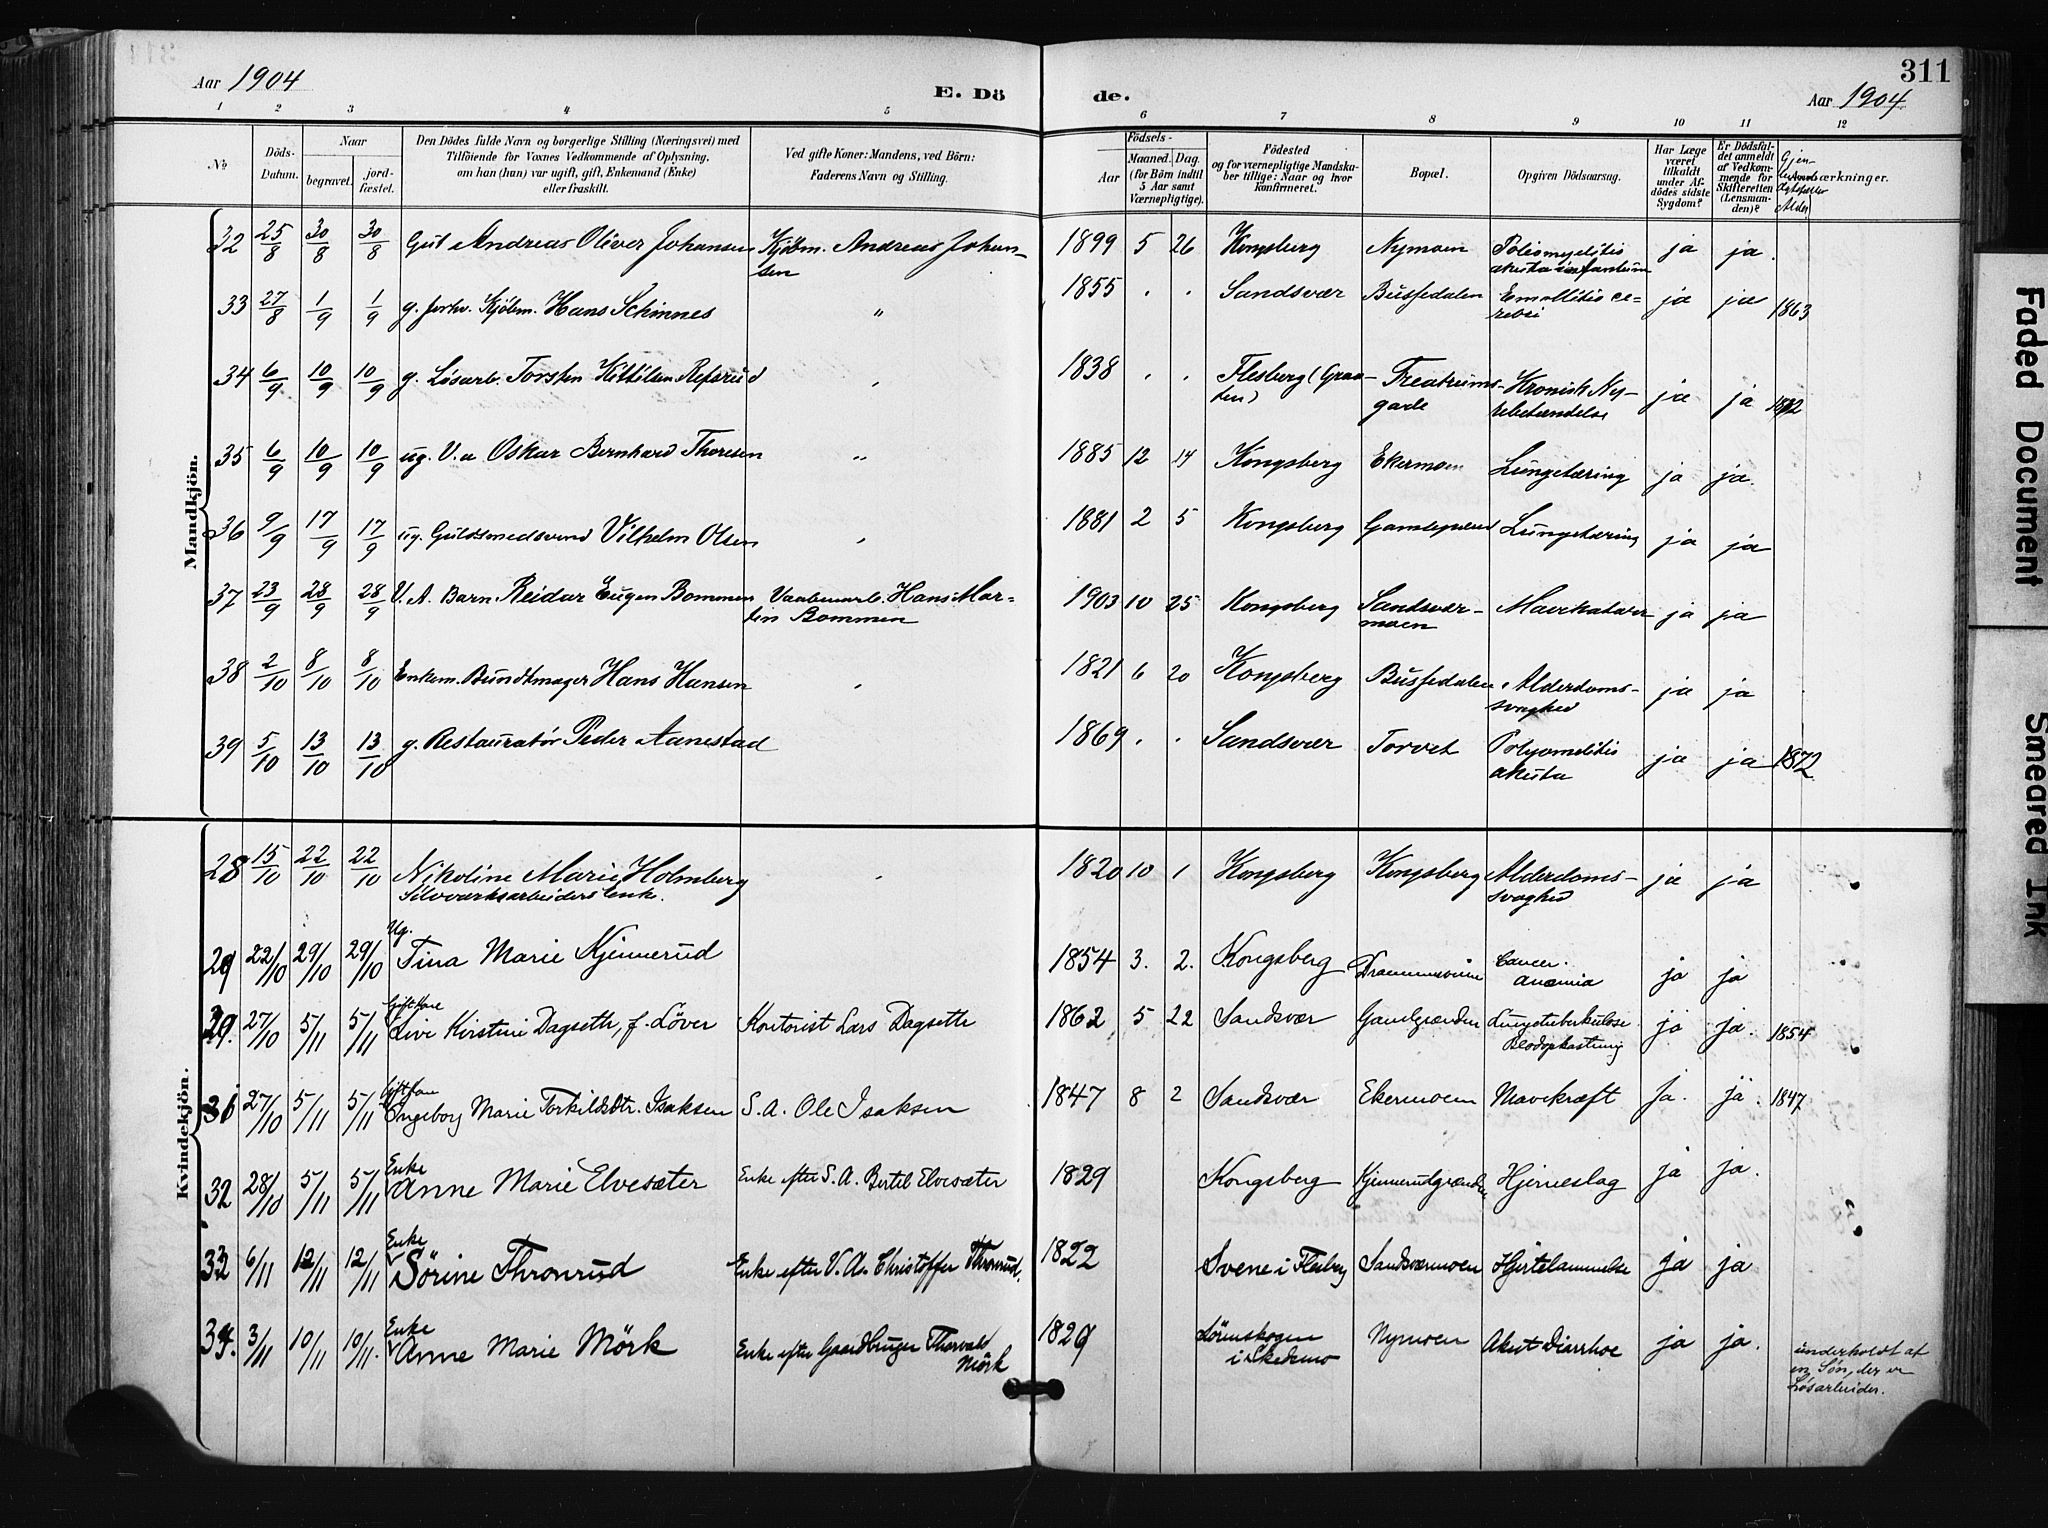 311
Aar 1904
E. Dö
de.
Aar 1904
1 2 3 4 5 6 7 8 9 10 11 12
No
Döds-Datum.
Naar
begravet.
jord-fæstet.
Den Dödes fulde Navn og borgerlige Stilling (Næringsvei) med
Tilföiende for Voxnes Vedkommende af Oplysning,
om han (hun) var ugift, gift, Enkemand (Enke)
eller fraskilt.
Ved gifte Koner: Mandens, ved Börn:
Faderens Navn og Stilling.
Födsels-
Aar
Maaned. Dag.
(for Börn indtil
5 Aar samt
Værnepligtige).
Födested
og for værnepligtige Mandska-
ber tillige: Naar og hvor
konfirmeret.
Bopæl.
Opgiven Dödsaarsag.
Har Læge
været
tilkaldt
under Af-
dödes sidste
Sygdom?
Er Dödsfal-
det anmeldt
af Vedkom-
mende for
Skifteretten
(Lensman-
den)?
Anmærkninger.
Mandkjön.
32 25/8 30/8 30/8 Gut Andreas Oliver Johansen Kjöbm. Andreas Johan-
sen
1899 5 26 Kongsberg Nymoen Poliomyelitis
akuta infantum ja ja.
33 27/8 1/9 1/9 g. forhv. Kjöbm. Hans Schinnes "
1855 . . Sandsvær Bussedalen Emollitio ce-
rebri ja ja 1863
34 6/9 10/9 10/9 g. Løsarb. Torsten Kittilsen Refsrud "
1838 . . Flesberg (Graa-
ten) Treatrums-
gade Kronisk Ny-
rebetændelse ja ja
35 6/9 10/9 10/9 ug. V.a Oskar Bernhard Thoresen "
1885 12 14 Kongsberg Ekermoen Lungetæring ja ja.
36 9/9 17/9 17/9 ug. Guldsmedsvend Vilhelm Olsen "
1881 2 5 Kongsberg Lungetæring ja ja
37 23/9 28/9 28/9 V. A. Barn Reidar Eugen Bommen Vaabenarb. Hans Mar-
tin Bommen
1903 10 25 Kongsberg Sandsvær-
moen Mavekatarr ja ja
38 2/10 8/10 8/10 Enkem. Bundtmager Hans Hansen "
1821 6 20 Kongsberg Bussedalen Alderdoms-
svaghed ja ja
39 5/10 13/10 13/10 g. Restauratör Peder Aanestad
1869 . . Sandsvær Torvet Polyomelitis
akuta ja ja 1872
Kvindekjön.
28 15/10 22/10 22/10 Nikoline Marie Holmberg
Sölvværksarbeiders enke.
1820 10 1 Kongsberg Kongsberg Alderdoms-
svaghed ja ja
Ug.
29 22/10 29/10 29/10 Tina Marie Kjennerud
1854 3. 2. Kongsberg Drammensveien Cancer.
Anæmia ja ja
Gift Kone
27/10 5/11 5/11 Live Kirstine Dagseth, f. Löver Kontorist Lars Dagseth
1862 5 22 Sandsvær Gamlgrænden Lungetuberkulose
Blodopkastning ja ja. 1854
Gift
27/10 5/11 5/11 Ingeborg Marie Torkildsdtr. Isaksen S. A. Ole Isaksen
1847 8 2 Sandsvær Ekermoen Mavekræft ja. ja. 1847
Enke
32 28/10 5/11 5/11 Anne Marie Elvesæter Enke efter S. A. Bertel Elvesæter
1829 Kongsberg Kjennerudgrænden Hjerneslag ja ja.
Enke
33 6/11 12/11 12/11 Sörine Thronrud Enke efter V. A. Christoffer Thronrud.
1822 Svene i Flesberg Sandsværmoen Hjertelammelse ja ja
Enke
34. 3/11 10/11 10/11. Anne Marie Mörk Enke efter Gaardbruger Thorvald
Mörk
1829 Lörenskogen
i Skedsmo Nymoen Akut Diarrhoe ja ja.
underholdt af
en Søn, der er
Løsarbeider.
Faded Document
Smeared Ink